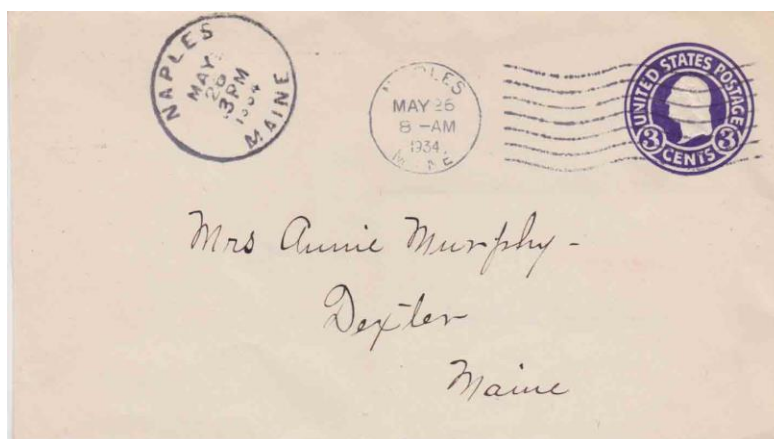 NAPLES
MAY
26
3PM
1934
MAINE
NAPLES
MAY 26
8-AM
1934
UNITED STATES POSTAGE
3 CENTS 3
Mrs Annie Murphy-
Dexter
Maine